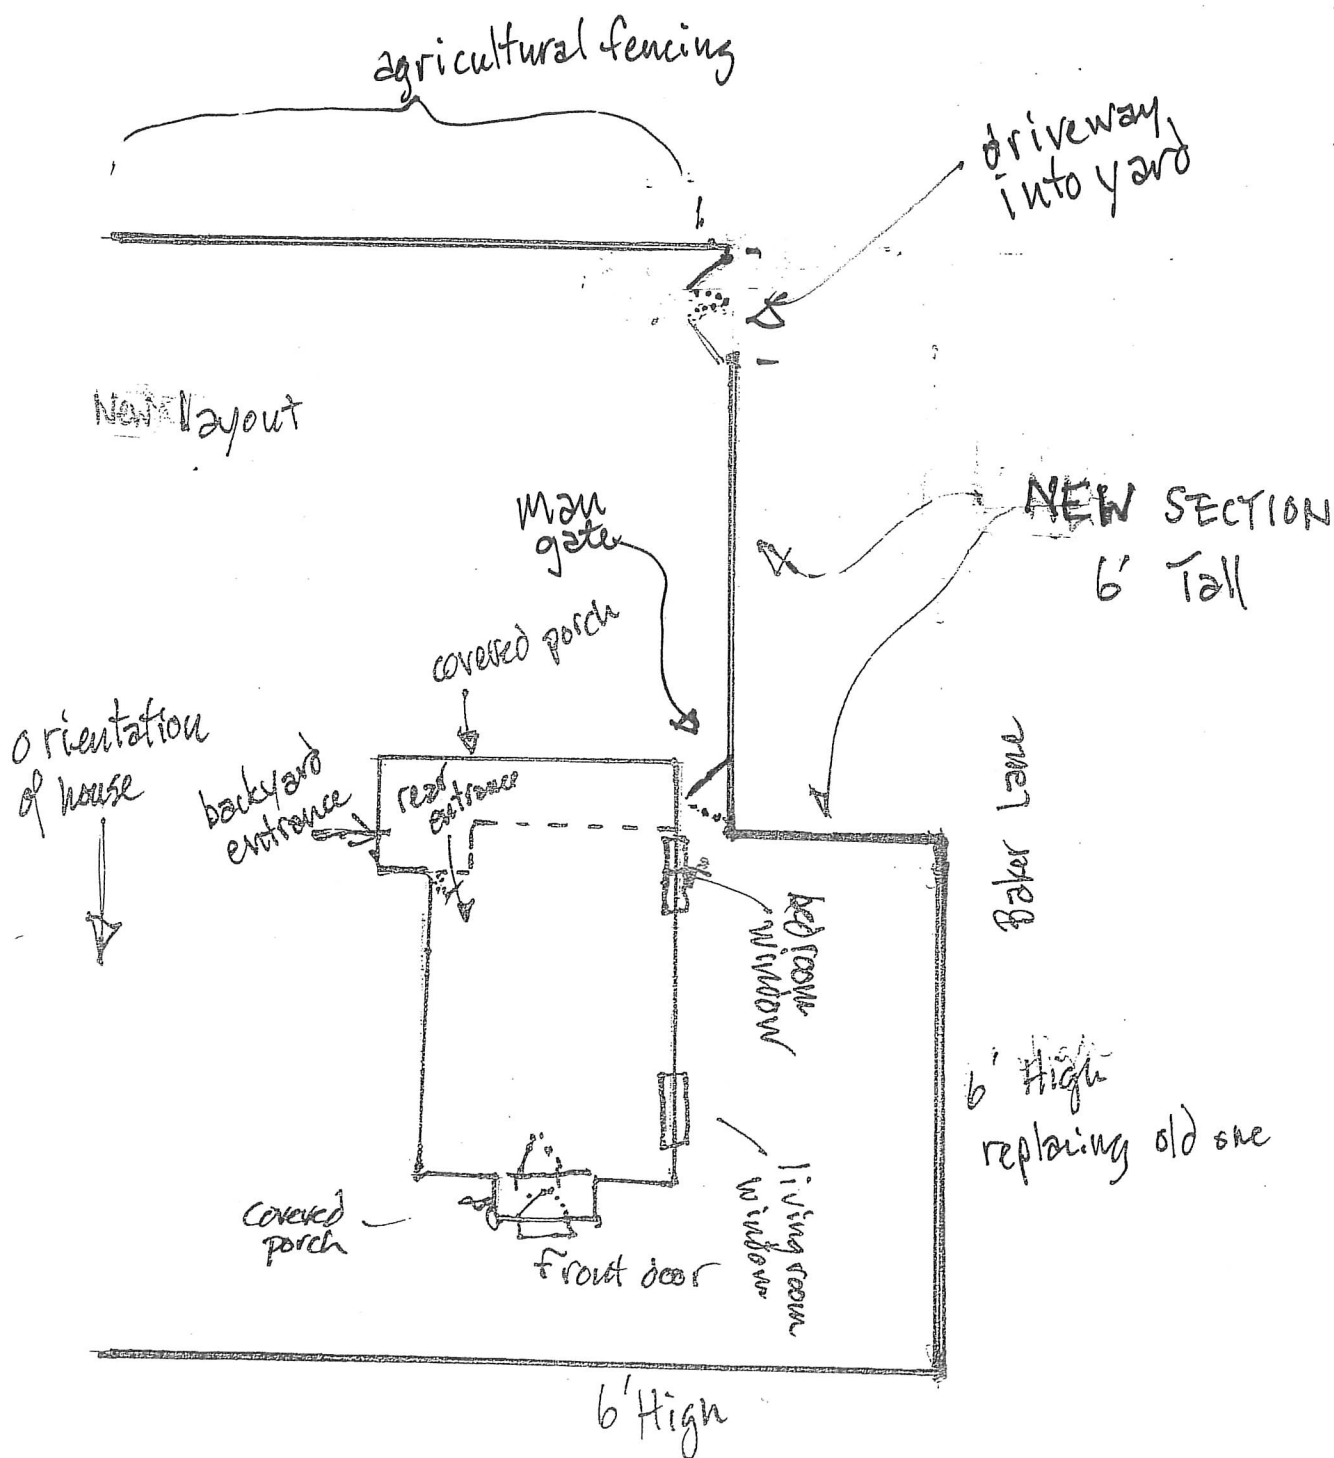 agricultural fencing
driveway
into yard
New layout
Man
gate
NEW SECTION
6' Tall
covered porch
orientation
of house
backyard
entrance
rear
entrance
Baker Lane
bedroom
window
6' High
replacing old one
living room
window
covered
porch
front door
6' High